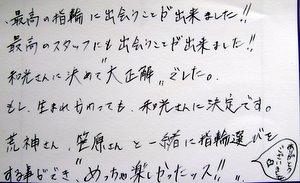 最高の指輪に出会うことが出来ました!!
最高のスタッフにも出会うことが出来ました!!
和光さんに決めて"大正解"でした。
もし、生まれかわっても、和光さんに決定です。
荒神さん、笹原さんと一緒に指輪選びを
する事ができ、"めっちゃ楽しかったッス!!"
ありがとう
ございました